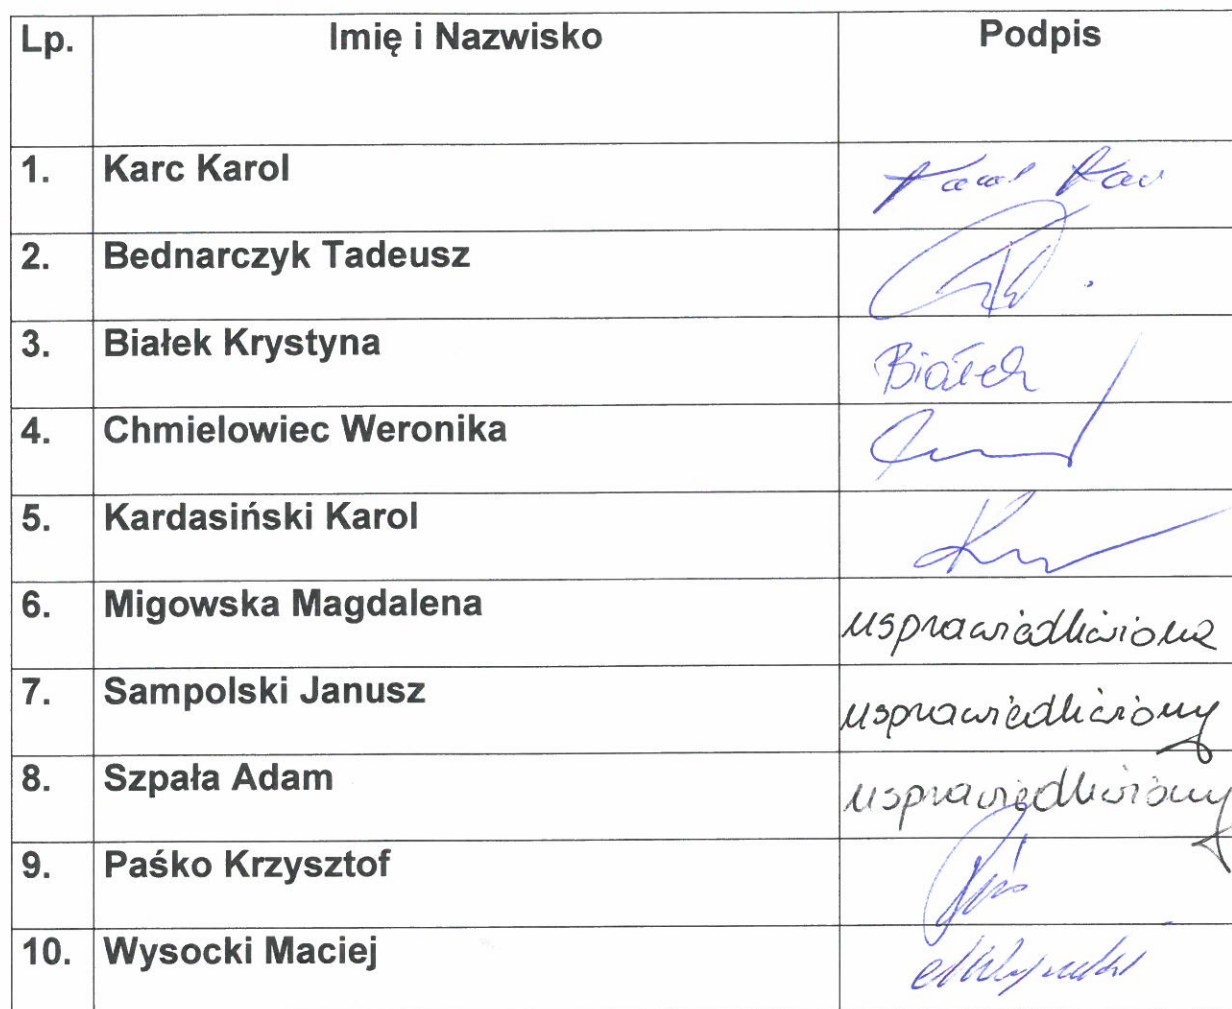 Lp. Imię i Nazwisko Podpis
1. Karc Karol Karol Karc
2. Bednarczyk Tadeusz
3. Białek Krystyna Białek
4. Chmielowiec Weronika
5. Kardasiński Karol
6. Migowska Magdalena usprawiedliwiona
7. Sampolski Janusz usprawiedliwiony
8. Szpała Adam usprawiedliwiony
9. Paśko Krzysztof
10. Wysocki Maciej